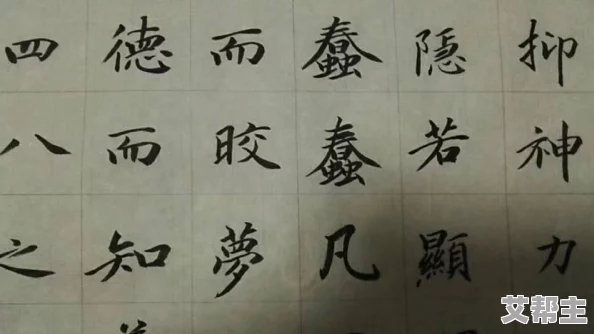 抑神力
隱若顯
蠢蠢凡
而晈夢
德而知
四八之
艾帮主